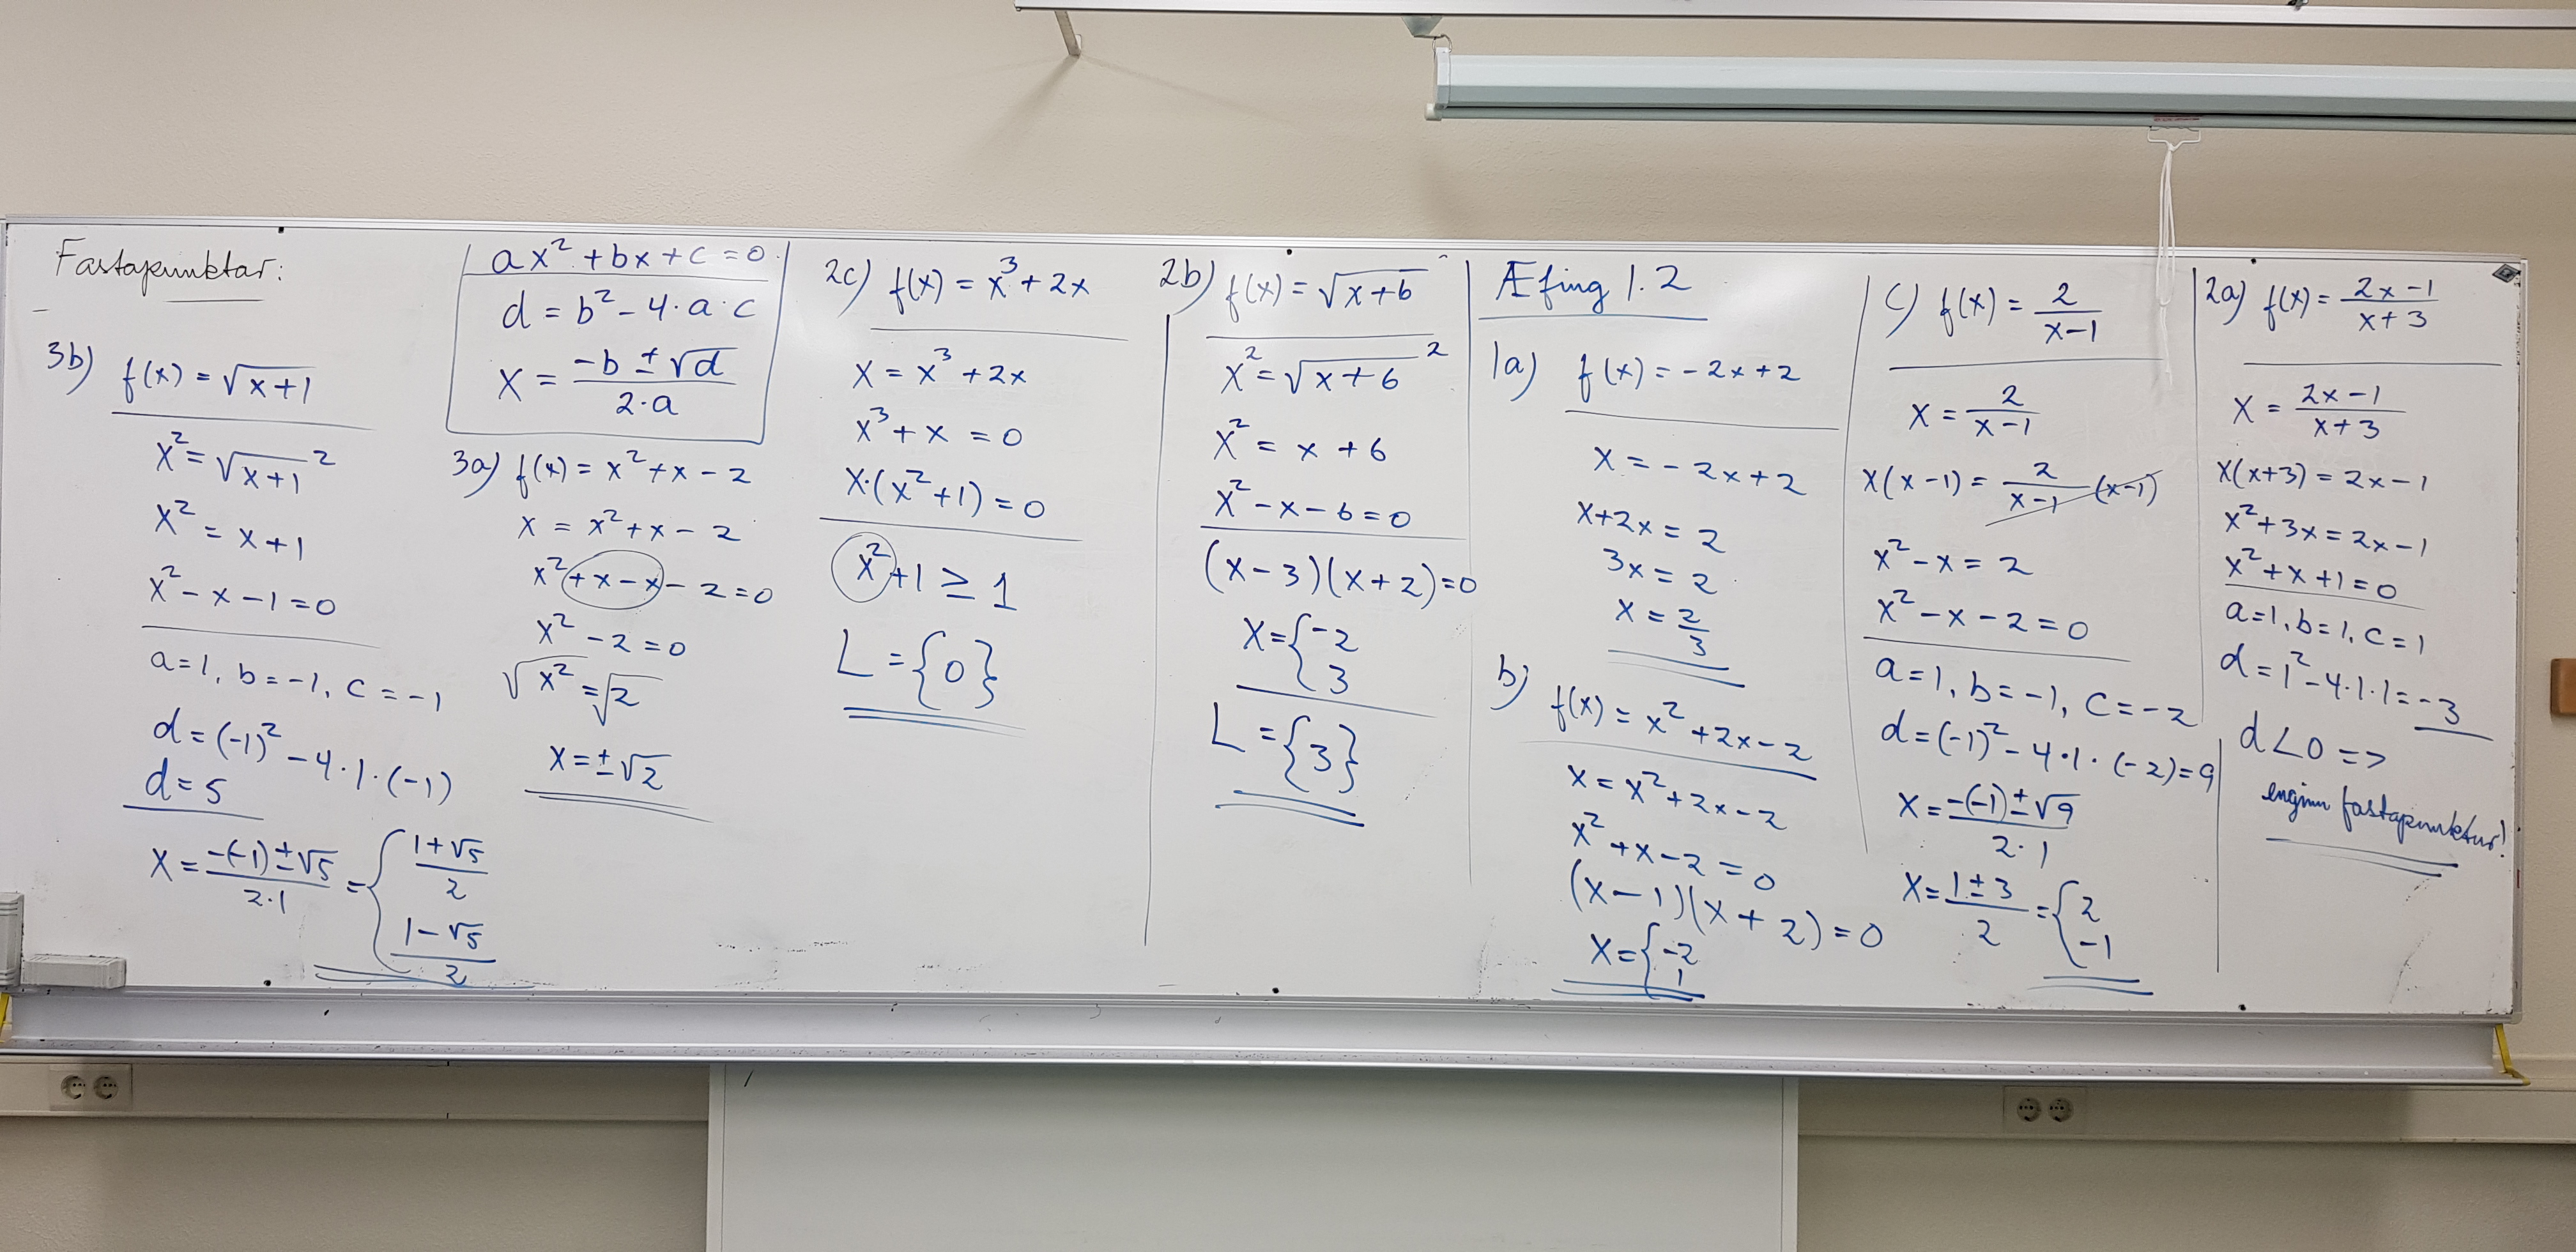 Fastapunktar:
3b) f(x) = √(x+1)
x² = √(x+1)²
x² = x+1
x² - x - 1 = 0
a=1, b=-1, c=-1
d = (-1)² - 4·1·(-1)
d = 5
x = (-(-1) ± √5)/(2·1) = { (1+√5)/2
(1-√5)/2
ax² + bx + c = 0
d = b² - 4·a·c
x = (-b ± √d)/(2·a)
3a) f(x) = x² + x - 2
x = x² + x - 2
x² + x - x - 2 = 0
x² - 2 = 0
√x² = √2
x = ±√2
2c) f(x) = x³ + 2x
x = x³ + 2x
x³ + x = 0
x·(x²+1) = 0
x² + 1 ≥ 1
L = {0}
2b) f(x) = √(x+6)
x² = √(x+6)²
x² = x + 6
x² - x - 6 = 0
(x-3)(x+2) = 0
x = { -2
3
L = {3}
Æfing 1.2
1a) f(x) = -2x+2
x = -2x+2
x+2x = 2
3x = 2
x = 2/3
b) f(x) = x² + 2x - 2
x = x² + 2x - 2
x² + x - 2 = 0
(x-1)(x+2) = 0
x = { -2
1
c) f(x) = 2/(x-1)
x = 2/(x-1)
x(x-1) = 2/(x-1) (x-1)
x² - x = 2
x² - x - 2 = 0
a=1, b=-1, c=-2
d = (-1)² - 4·1·(-2) = 9
x = (-(-1) ± √9)/(2·1)
x = (1±3)/2 = { 2
-1
2a) f(x) = (2x-1)/(x+3)
x = (2x-1)/(x+3)
x(x+3) = 2x-1
x² + 3x = 2x-1
x² + x + 1 = 0
a=1, b=1, c=1
d = 1² - 4·1·1 = -3
d < 0 =>
enginn fastapunktur!